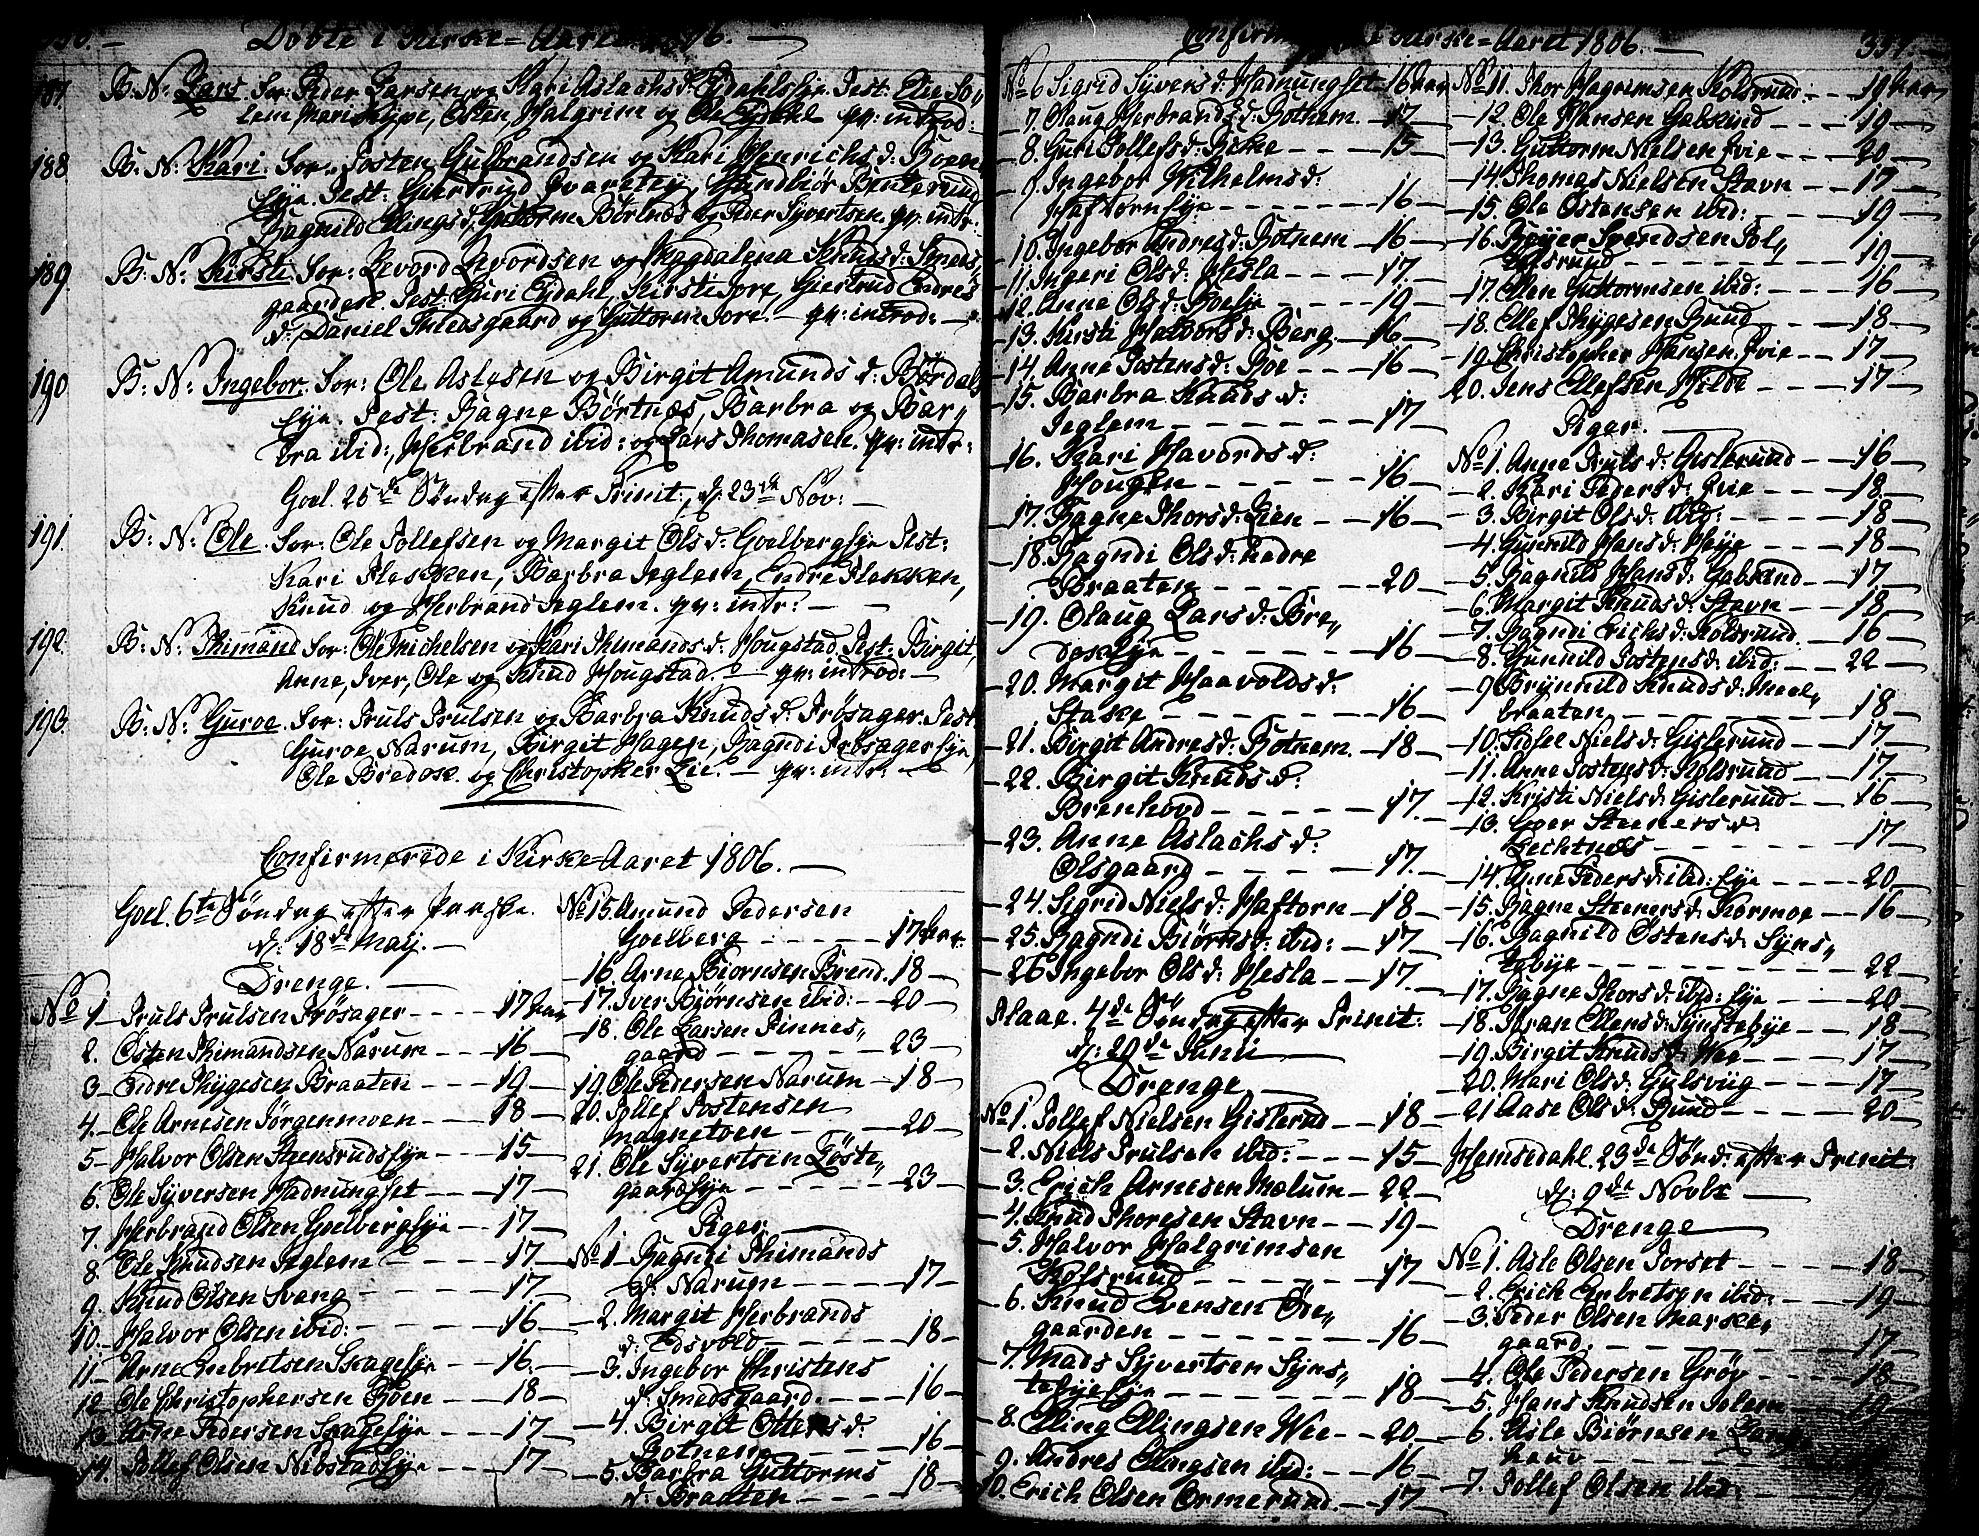 Döbte i Kirke=Aaret 1806.
187. B: N: Lars. For: Peder Larsen og Kari Aslachsd. Eydahlseye. Test: Ole So„
lem, Mari Skyve, Østen, Halgrim og Ole Eydahl. qv: introd:
188 B: N: Kari. For: Josten Gulbrandsen og Kari Henrichsd: Boen
eye. Test: Giertrud Gundbiör
Ragnild Ellingsd, Guttorm Börtnæs og Peder Syvertsen. qv: intr:
189 B: N: Kirsti. For: Levord Levordsen og Magdalena Knudsd: Smeds„
gaarden. Test: Guri Eydahl, Kirsti Tore, Giertrud Endres
d: Daniel Smedsgaard og Guttorm Tore. - qv: introd: -
190 B: N: Ingebor. For: Ole Aslesen og Birgit Amunds d: Bördals
eye. Test: Ragne Börtnæs, Barbra og Bar„
bra ibid:, Herbrand ibid: og Lars Thomasen. qv: intr:
Goel. 25de Söndag efter Trinit:, d: 23de Nov:
191. B: N: Ole. For: Ole Tollefsen og Margit Olsd: Goelbergeye Test:
Kari Flekken, Barbra Jeglem, Endre Flekken,
Knud og Herbrand Jeglem. qv: intr: -
192. B: N: Thimand For: Ole Michelsen og Kari Thimandsd. Hougstad. Test: Birgit,
Anne, Iver, Ole og Knud Hougstad. - qv: introd: -
193. B: N: Guroe. For: Truls Trulsen og Barbra Knudsd: Frösager. Test
Guroe Narum, Birgit Hagen, Ragndi Frösagereye,
Ole Bredose og Christopher Lie. - qv: intr: -
Confirmerede i Kirke=Aaret 1806.
Goel. 6te Söndag efter Paaske.
d: 18de Maij.
Drenge.
No 1. Truls Trulsen Frösager - - - - 17 Aar
2. Østen Thimandsen Narum - - - 16
3. Endre Thygesen Braaten - - - 19
4. Ole Arnesen Jörgenmoen - - - 18
5 Halvor Olsen Steensrudseye - - - 15
6. Ole Syversen Hadnungset - - - 17
7. Herbrand Olsen Goelbergeye - - 17
8. Ole Knudsen Jeglem - - - - 17
9. Knud Olsen Svang - - - - 17
10. Halvor Olsen ibid: - - - - 16
11. Arne Embretsen Skageeye - - 16.
12 Ole Christophersen Roen - - - 18
13. Arne Pedersen Skageeye - - - 17
14. Tollef Olsen Nibstadeye - - - 17
No 15. Amund Pedersen
Goelberg - - - - - 17 Aar.
16. Arne Biörnsen Brend. 18
17. Iver Biörnsen ibid: - - 20
18. Ole Larsen Finnes„
gaard - - - - - - 23
19. Ole Pedersen Narum - 18
20. Tollef Jostensen
Magnetoen - - - - - 20
21. Ole Syvertsen Löste„
gaardeye - - - - - 23
Piger.
No 1 Ragndi Thimands
d: Narum - - - - - 17
2. Margit Herbrands
d: Edsvold - - - - - 18
3. Ingebor Christens
d: Smedsgaard. - - - 16
4. Birgit Ottersd.
Botnem - - - - - 16
5. Barbra Guttorms
d: Braaten - - - - 18
Confirmerede i Kirke=Aaret 1806. 337.
No 6 Sigrid Syversd. Hadnungset 16 Aar
7. Olaug Herbrandsd: Bothem. - 17
8. Guri Tollefsd: - - - 15
9. Ingebor Wilhelmsd:
Haftorneye - - - - - 16
10. Ingebor Andresd: Botnem - 16
11. Ingeri Olsd: Hesla - - - - 17
12. Anne Olsd: - - - - 19
13. Kirsti Halvorsd: Berg. - 16
14. Anne Jostensd: Boe - - - 16
15. Barbra Knuds d:
Jeglem - - - - - - 17
16. Kari Havords d:
Hougen - - - - - - 16
17. Ragne Thorsd: Lien - - 16
18. Ragndi Olsd: nedre
Braaten - - - - - - 20
19. Olaug Larsd: Bre„
doseeye - - - - - - 16
20. Margit Haavoldsd:
Stake - - - - - - 16
21. Birgit Andresd: Botnem. - 18
22. Birgit Knudsd:
Brenhovd - - - - - 17
23. Anne Aslachs d:
Olsgaard - - - - - 17.
24. Sigrid Nielsd: Haftorn - 18
25. Ragndi Biörnsd: ibid: - 17
26 Ingebor Olsd: Hesla - - 17
Aal. 4de Söndag efter Trinit:
d: 29de Junii
Drenge.
No 1. Tollef Nielsen Gislerud - - 18
2. Niels Trulsen ibid: - - - 15
3. Erich Arnesen Mælum - 22
4. Knud Thoresen Stavn - - 19
5. Halvor Halgrimsen
Kolsrund - - - - - 17
6. Knud Evensen Öre„
gaarden - - - - - 16
7. Mads Syvertsen Syns„
tebyeeye - - - - - 18
8. Elling Ellingsen Wee - - 20
9. Andres Ellingsen ibid: - - 16
10. Erich Olsen Ormerund. - 17
No 11. Thor Hagrimsen Kolsrund. - 19 Aar
12. Ole Hansen Gulsund - - - 19
13. Guttorm Nielsen Evie - - - 20
14. Thomas Nielsen Stavn - - 17
15. Ole Östensen ibid: - - - - 19
16. Svendsen Kol„
srund - - - - - - 19
17. Ellen Guttormsen ibid: - - 16
18. Ellef Thygesen Rund - - - 18
19. Christopher Hansen Evie - - 17
20. Jens Ellefsen Hilde - - - 17
Piger.
No 1. Anne Trulsd: Gislerund - - 16
2. Kari Pedersd: Evie - - - 18
3. Birgit Olsd: ibid: - - - - 18
4. Gunnild Hansd: Heye - - - 18
5. Ragnild Hansd: Gulsund - - 17
6. Margit Knudsd: Stavn - - - 18
7. Ragndi Erichsd: Kolsrund - 16
8. Gunnild Jostensd: ibid: - - 22
9 Brynnild Knudsd: Meel„
braaten - - - - - - 18
10. Sidsel Nielsd: Gislerund - - 17
11. Anne Jostensd: Kolsrund - - 17.
12. Kirsti Nielsd: Gislerund - - 16
13. Goer Steenersd:
Techtnæs - - - - - - 17
14. Anne Pedersd: ibid: eye - - - 20
15. Ragne Steenersd: Kormoe - 16
16. Ragnild Östensd: Syns„
tebye - - - - - - 22
17. Ragne Thorsd: ibid: eye - - 20
18. Jöran Ellensd: Synstebye - - 18
19. Birgit Knudsd: Wee - - - 17
20. Mari Olsd: Gulsviig - - - 17
21 Aase Olsd: Rund - - - - 20
Hemsedahl. 23de Sönd: efter Trinit:
d: 9de Novbr
Drenge
No 1. Asle Olsen Torset - - - - 18
2. Erich Embretsen ibid: - - - 19
3. Peder Olsen Marke„
gaard. - - - - - - 17
4. Ole Pedersen Gröy - - - 18
5. Hans Knudsen Solem - - 19
6. Asle Biörnsen Lang„
houv - - - - - -
7. Tollef Olsen ibid: - - - 19